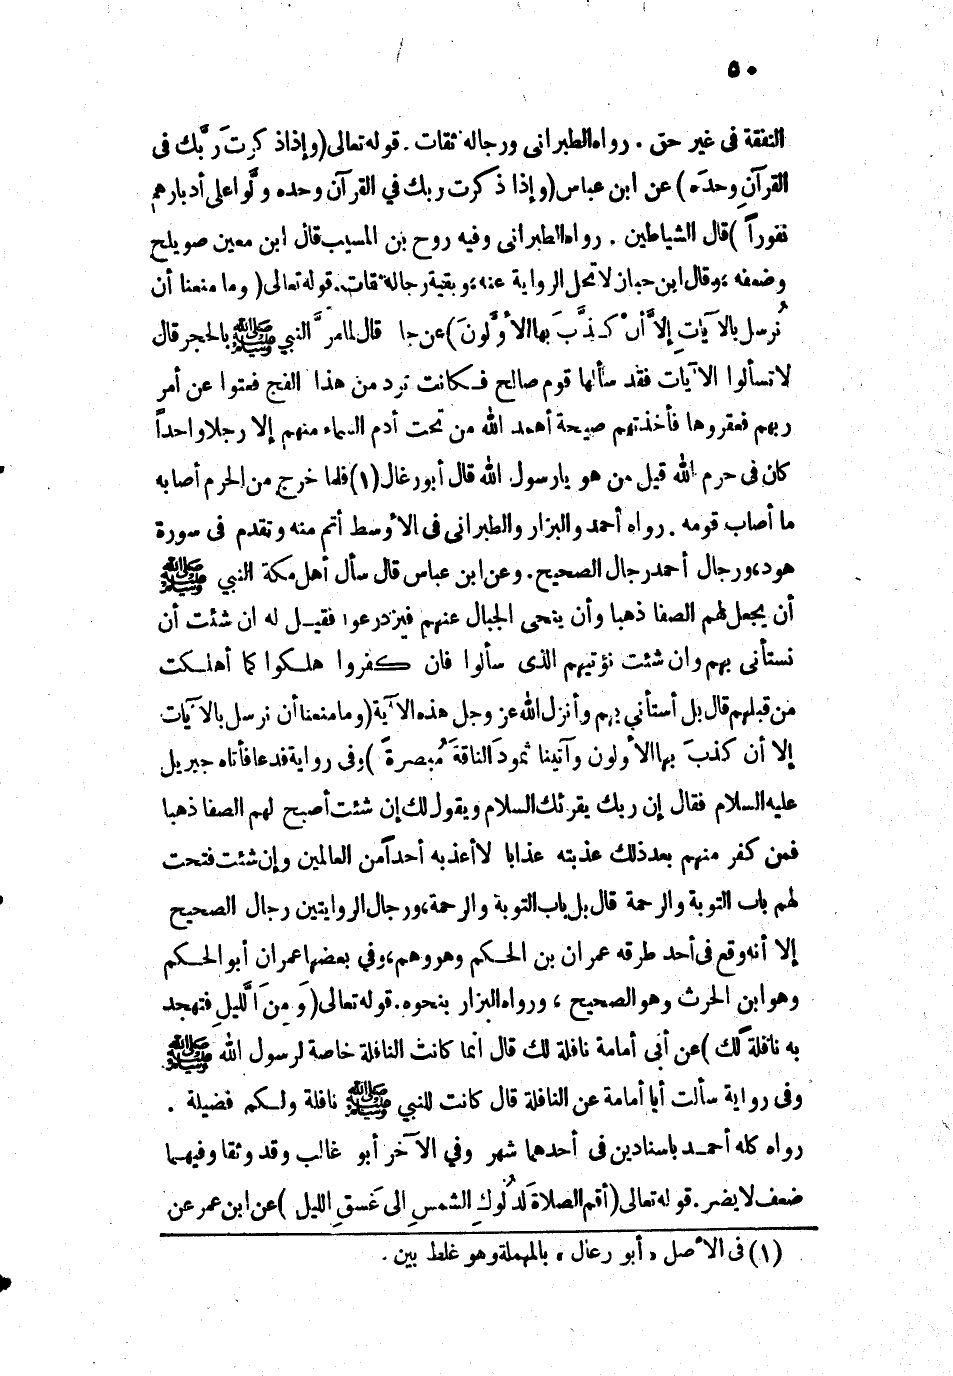 ٥٠
النفقة فى غير حق . رواه الطبرانى ورجاله ثقات . قوله تعالى (وإذا ذكرتَ ربَّك فى
القرآنِ وحدَه) عن ابن عباس (وإذا ذكرت ربك في القرآن وحده ولَّوا على أدبارهم
نفوراً) قال الشياطين . رواه الطبرانى وفيه روح بن المسيب قال ابن معين صويلح
وضعفه ، وقال ابن حبان لا تحل الرواية عنه ، وبقية رجاله ثقات . قوله تعالى (وما منعنا أن
نُرسل بالآيَاتِ إلاَّ أنْ كذَّبَ بها الأوَّلونَ) عن جا قال لما مرَّ النبي ﷺ بالحجر قال
لا تسألوا الآيات فقد سألها قوم صالح فكانت ترد من هذا الفج فعتوا عن أمر
ربهم فعقروها فأخذتهم صيحة أهمد الله من تحت أدم السماء منهم إلا رجلا واحداً
كان فى حرم الله قيل من هو يا رسول الله قال أبو رغال (١) فلما خرج من الحرم أصابه
ما أصاب قومه . رواه أحمد والبزار والطبرانى فى الأوسط أتم منه وتقدم فى سورة
هود ، ورجال أحمد رجال الصحيح . وعن ابن عباس قال سأل أهل مكة النبي ﷺ
أن يجعل لهم الصفا ذهبا وأن ينحى الجبال عنهم فيزدرعوا فقيل له ان شئت أن
نستأنى بهم وان شئت نؤتيهم الذى سألوا فان كفروا هلكوا كما أهلكت
من قبلهم قال بل أستأني بهم وأنزل الله عز وجل هذه الآية (وما منعنا أن نرسل بالآيات
إلا أن كذبَ بها الأولون وآتينا ثمودَ الناقةَ مُبصرةً) وفى رواية فدعا فأتاه جبريل
عليه السلام فقال إن ربك يقرئك السلام ويقول لك إن شئت أصبح لهم الصفا ذهبا
فمن كفر منهم بعد ذلك عذبته عذابا لا أعذبه أحداً من العالمين وإن شئت فتحت
لهم باب التوبة والرحمة قال بل باب التوبة والرحمة ، ورجال الروايتين رجال الصحيح
إلا أنه وقع فى أحد طرقه عمران بن الحكم وهو وهم ، وفي بعضها عمران أبو الحكم
وهو ابن الحرث وهو الصحيح ، ورواه البزار بنحوه . قوله تعالى (وَمِنَ الَّليلِ فتهجد
به نافلةً لك) عن أبى أمامة نافلة لك قال انما كانت النافلة خاصة لرسول الله ﷺ
وفى رواية سألت أبا أمامة عن النافلة قال كانت للنبي ﷺ نافلة ولكم فضيلة .
رواه كله أحمد باسنادين فى أحدهما شهر وفي الآخر أبو غالب وقد وثقا وفيهما
ضعف لا يضر . قوله تعالى (أقم الصلاةَ لدُلُوكِ الشمسِ الى غَسقِ الليل) عن ابن عمر عن
(١) فى الأصل « أبو رعال » بالمهملة وهو غلط بين .